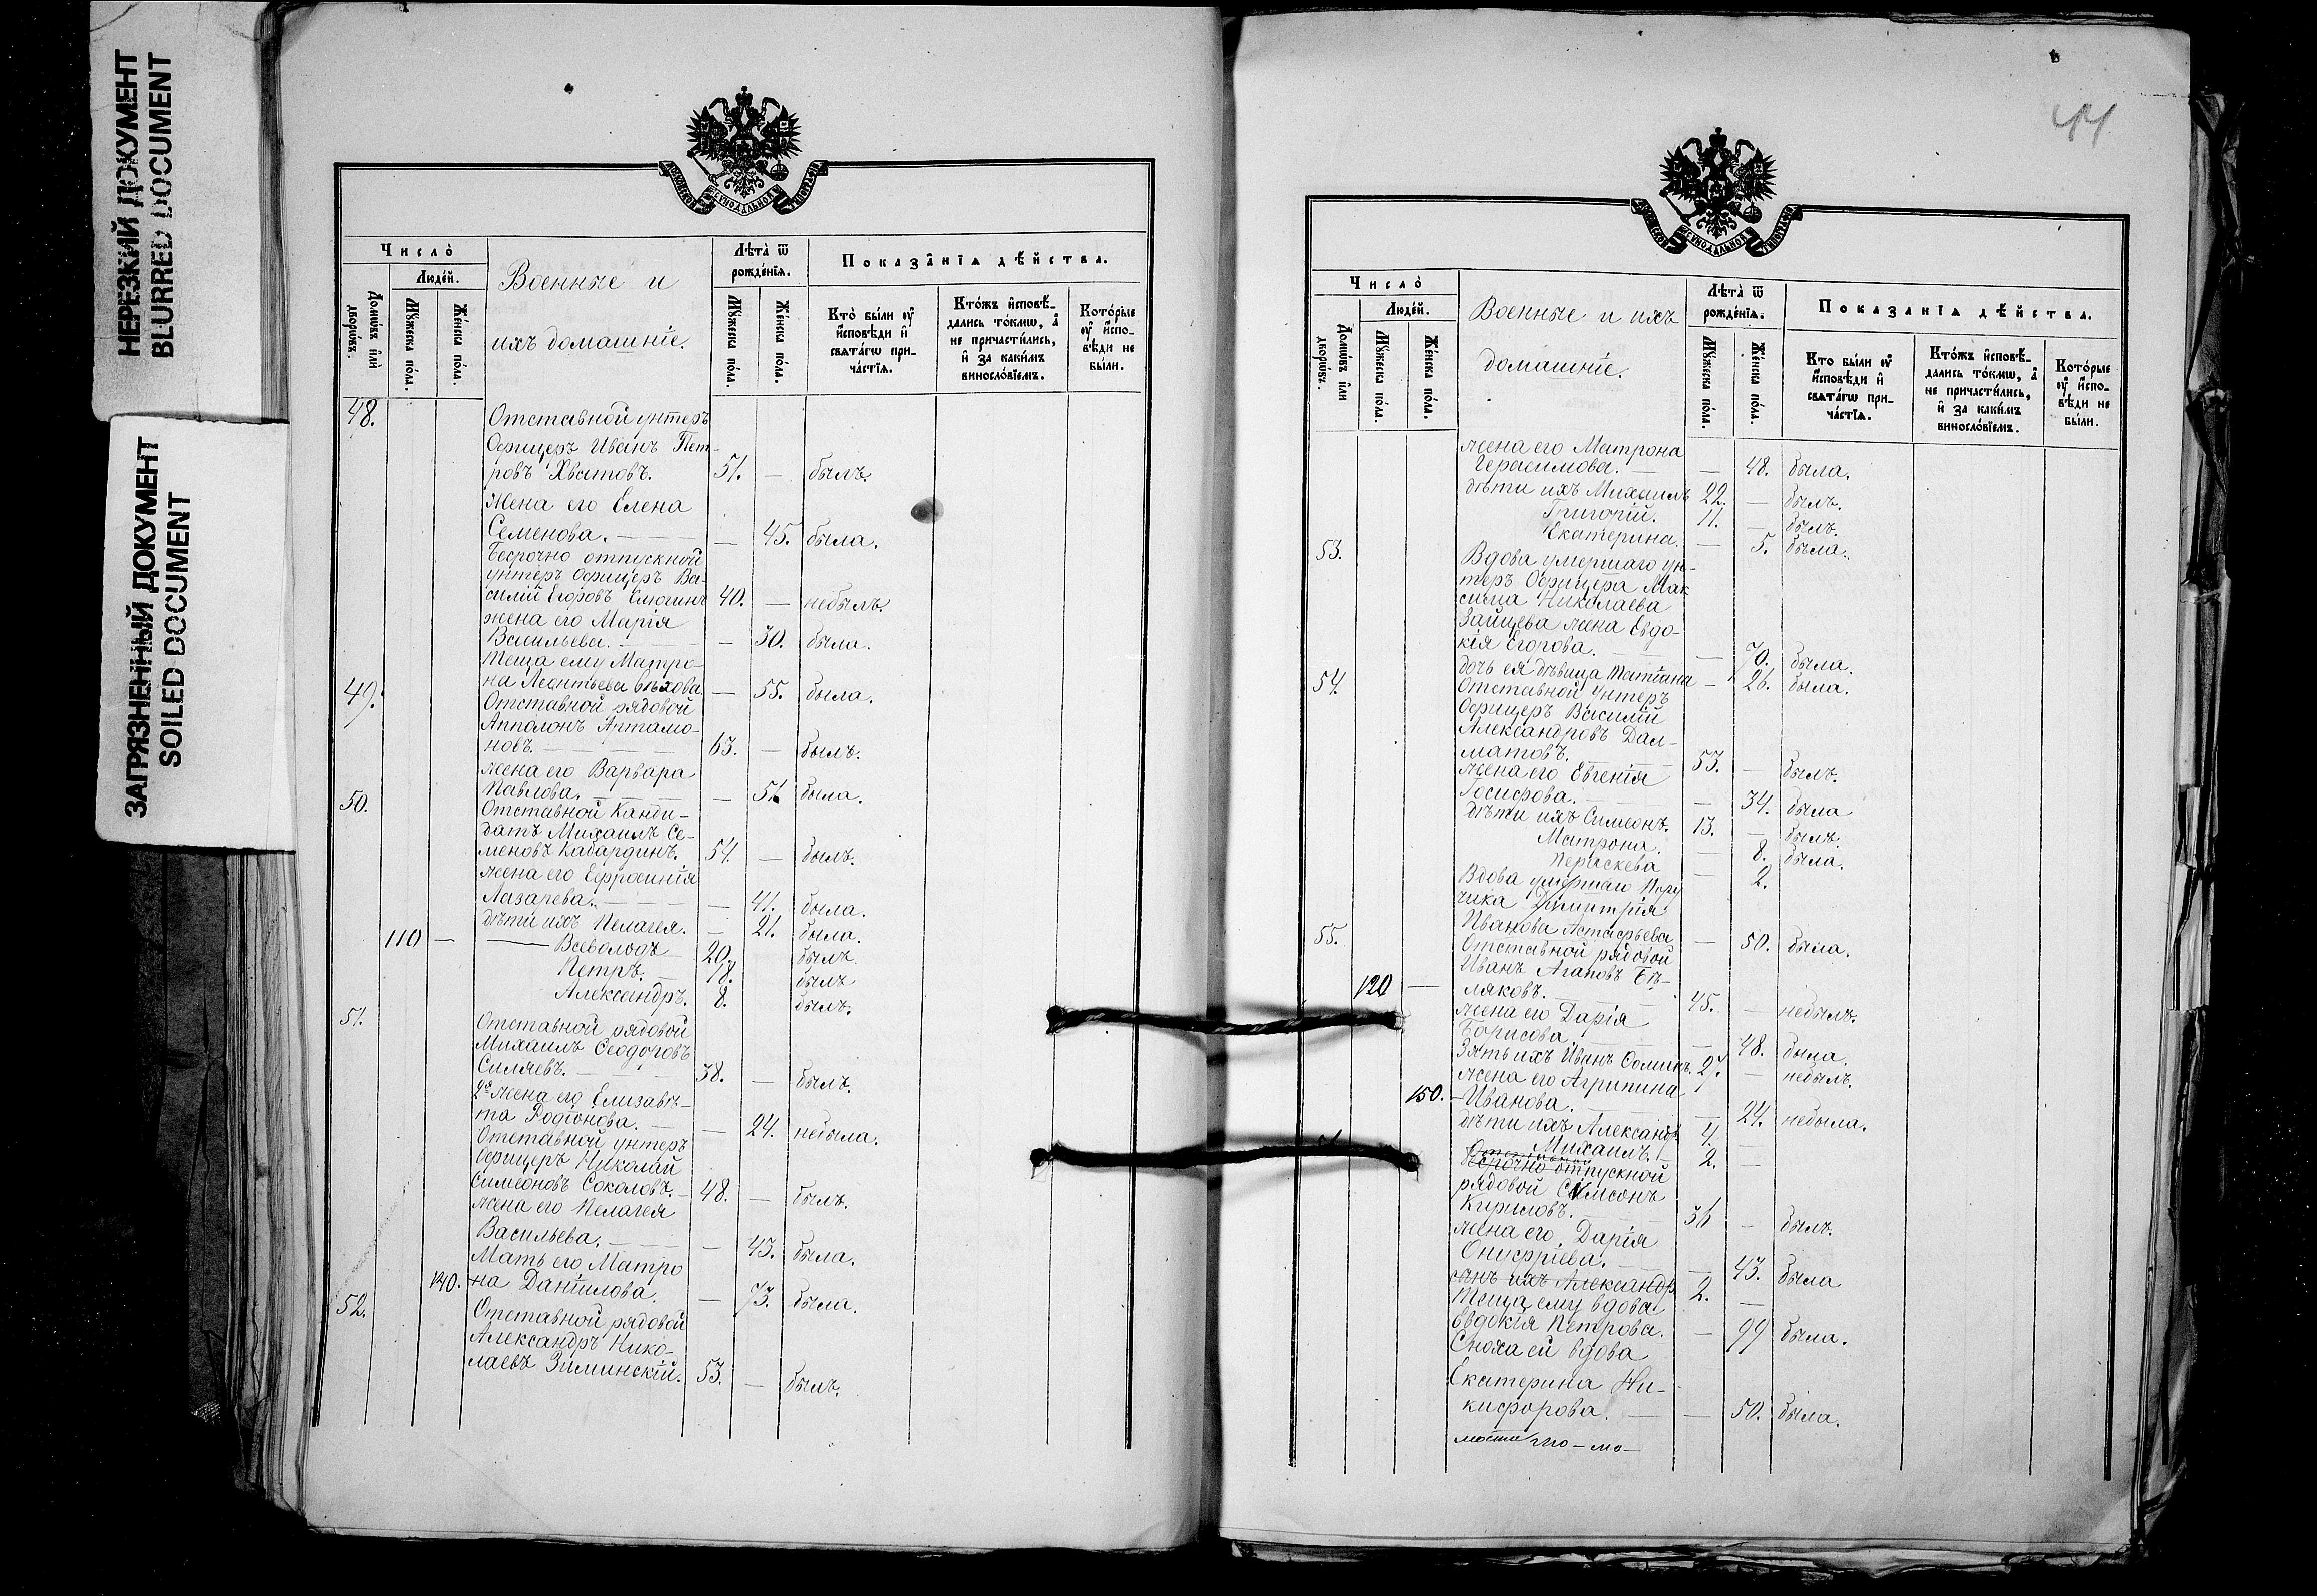 НЕРЕЗКИЙ ДОКУМЕНТ
BLURRED DOCUMENT
ЗАГРЯЗНЕННЫЙ ДОКУМЕНТ
SOILED DOCUMENT
МОСКОВСКОЙ СѴНОДАЛЬНОЙ ТИПОГРАФІИ
Число̀
Людє́й.
Домѡ́въ и҆лѝ дворѡ́въ.
Мꙋ́жеска по́ла.
Же́нска по́ла.
Военные и
ихъ домашніе.
Лѣта̀ ѿ рождє́нїѧ.
Мꙋ́жеска по́ла.
Же́нска по́ла.
Показа̑нїѧ дѣ́йства.
Кто̀ бы́ли ᲂу҆
и҆спо́вѣди и҆
свѧта́гѡ при-
ча́стїѧ.
Кто́жъ и҆сповѣ́-
дались то́кмѡ, а҆
не причасти́лись,
и҆ за каки́мъ
винносло́вїемъ.
Кото́рые
ᲂу҆ и҆спо-
вѣди не
бы́ли.
48. Отставной унтеръ
Офицеръ Иванъ Пет-
ровъ Хватовъ. 51. — былъ.
жена его Елена
Семенова. — — 45. была.
Безрочно отпускной
унтеръ Офицеръ Ва-
силій Егоровъ Елюгинъ 40. — небылъ.
жена его Марія
Васильева. — — 30. была.
Теща ему Матро-
на Леонтьева вдова — 55. была.
49. Отставной рядовой
Апполонъ Артамо-
новъ. — 63. — былъ.
жена его Варвара
Павлова. — — 51. была.
50. Отставной Канди-
датъ Михаилъ Се-
меновъ Кабардинъ. 54. — былъ.
жена его Ефросинія
Лазарева. — — 41. была.
дѣти ихъ Пелагея. — 21. была.
110 — Всеволодъ 20. былъ
Петръ. 18. былъ
Александръ. 8. былъ.
51. Отставной рядовой
Михаилъ Ѳеодоровъ
Силяевъ. — 38. — былъ.
жена его Елизавѣ-
та Родіонова. — — 24. небыла.
Отставной унтеръ
Офицеръ Николай
Симеоновъ Соколовъ. 48. — былъ.
жена его Пелагея
Васильева. — — 43. была.
Мать его Матро
140. на Даніилова. — 73. была.
52. Отставной рядовой
Александръ Нико-
лаевъ Зиминскій. 53. — былъ.
44
МОСКОВСКОЙ СѴНОДАЛЬНОЙ ТИПОГРАФІИ
Число̀
Людє́й.
Домѡ́въ и҆лѝ дворѡ́въ.
Мꙋ́жеска по́ла.
Же́нска по́ла.
Военные и ихъ
домашніе.
Лѣта̀ ѿ рождє́нїѧ.
Мꙋ́жеска по́ла.
Же́нска по́ла.
Показа̑нїѧ дѣ́йства.
Кто̀ бы́ли ᲂу҆
и҆спо́вѣди и҆
свѧта́гѡ при-
ча́стїѧ.
Кто́жъ и҆сповѣ́-
дались то́кмѡ, а҆
не причасти́лись,
и҆ за каки́мъ
винносло́вїемъ.
Кото́рые
ᲂу҆ и҆спо-
вѣди не
бы́ли.
жена его Матрона
Герасимова. — — 48. была.
дѣти ихъ Михаилъ 22. — былъ.
Григорій. 11. — былъ.
Екатерина. — 5. была.
53. Вдова умершаго ун-
теръ Офицера Мак
сима Николаева
Зайцева жена Евдо-
кія Егорова. — 70. была.
дочь ея дѣвица Татіана — 26. была.
54. Отставной унтеръ
Офицеръ Василій
Александровъ Дал-
матовъ. 53. — былъ.
жена его Евгенія
Іосифова. — 34. была
дѣти ихъ Симеонъ. 13. — былъ.
Матрона. — 8. была.
Параскева — 2.
Вдова умершаго Пору
чика Димитрія
Иванова Астафьева — 50. была.
55. Отставной рядовой
Иванъ Агаповъ Бѣ-
120 — ляковъ. 45. — небылъ.
жена его Дарія
Борисова. — 48. была.
Зять ихъ Иванъ Ѳоминъ. 27. — небылъ.
жена его Агрипина
150. — Иванова. — 24. небыла.
дѣти ихъ Александръ 4. —
Михаилъ. 2. —
Отставной
Безрочно отпускной
рядовой Самсонъ
Кириловъ. 36 — былъ.
жена его Дарія
Онуфріева. — 43. была
сынъ ихъ Александръ 2. —
Теща ему вдова
Евдокія Петрова. — 99 была.
Сноха ей вдова
Екатерина Ни-
кифорова. — — 50. была.